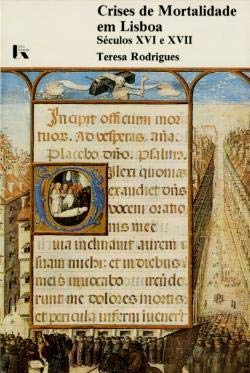 Crises de Mortalidade
em Lisboa
Séculos XVI e XVII
Teresa Rodrigues
Incipit officium mor
tuor. Ad vesperas. aña.
Placebo dño. Psalm.
Dilexi quoniã
exaudiet dñs
vocem oratio
nis mee
Quia inclinauit aurem
suam michi: et in diebus
meis inuocabo
runt me dolores mortis:
et pericula inferni inuenert